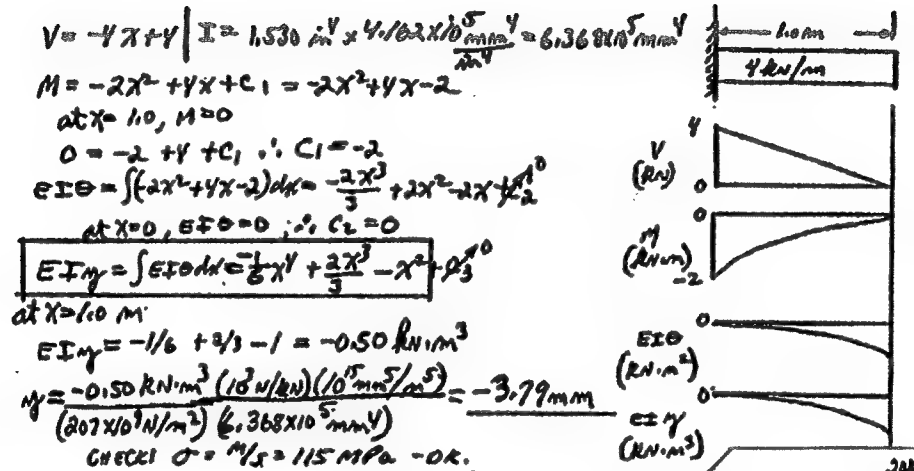 V = -4x+4 | I = 1.530 in⁴ × 4.162×10⁵ mm⁴/in⁴ = 6.368×10⁵ mm⁴
M = -2x² + 4x + C₁ = -2x² + 4x - 2
at x = 1.0, M = 0
0 = -2 + 4 + C₁ ∴ C₁ = -2
EIθ = ∫(-2x²+4x-2)dx = -2x³/3 + 2x² - 2x + C₂ 0
at x=0, EIθ = 0 ∴ C₂ = 0
EIy = ∫EIθdx = -1/6 x⁴ + 2x³/3 - x² + C₃ 0
at x = 1.0 m
EIy = -1/6 + 2/3 - 1 = -0.50 kN·m³
y = -0.50 kN·m³ (10³ N/kN)(10¹⁵ mm⁵/m⁵) / (207×10⁹ N/m²)(6.368×10⁵ mm⁴) = -3.79 mm
CHECK: σ = M/S = 115 MPa - OK.
1.0 m
4 kN/m
4
V
(kN)
0
0
M
(kN·m)
-2
0
EIθ
(kN·m²)
0
EIy
(kN·m³)